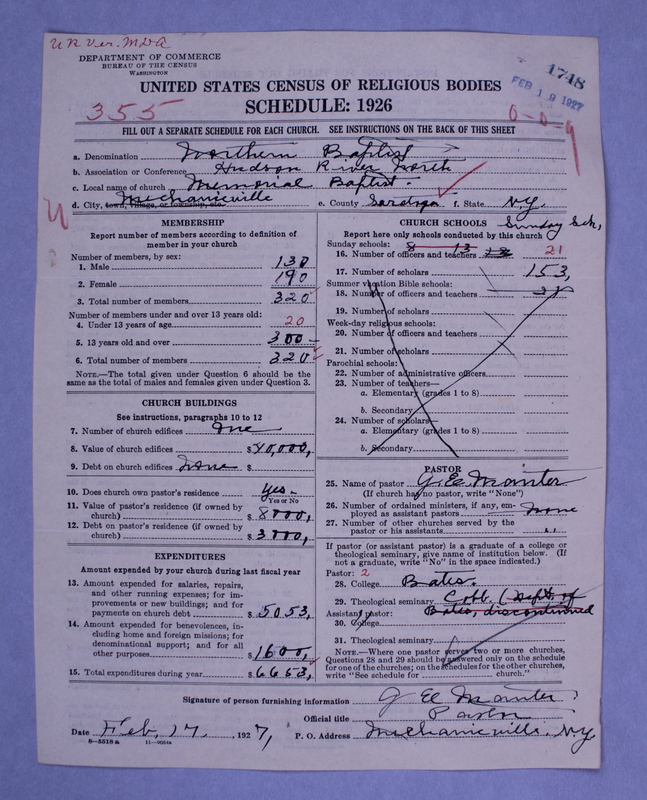 U R Ver. MDA
DEPARTMENT OF COMMERCE
BUREAU OF THE CENSUS
WASHINGTON
1748
FEB 19 1927
UNITED STATES CENSUS OF RELIGIOUS BODIES
SCHEDULE: 1926
355
0-0-9
FILL OUT A SEPARATE SCHEDULE FOR EACH CHURCH. SEE INSTRUCTIONS ON THE BACK OF THIS SHEET
a. Denomination Northern Baptist
b. Association or Conference Hudson River North
c. Local name of church Memorial Baptist.
d. City, town, village, or township, etc. Mechanicville e. County Saratoga f. State N.Y.
MEMBERSHIP
Report number of members according to definition of
member in your church
Number of members, by sex:
1. Male 130
2. Female 190
3. Total number of members 320
Number of members under and over 13 years old:
4. Under 13 years of age 20
5. 13 years old and over 300
6. Total number of members 320
NOTE.—The total given under Question 6 should be the
same as the total of males and females given under Question 3.
CHURCH BUILDINGS
See instructions, paragraphs 10 to 12
7. Number of church edifices One
8. Value of church edifices $40,000,
9. Debt on church edifices None $
10. Does church own pastor's residence Yes
Yes or No
11. Value of pastor's residence (if owned by
church) $8000,
12. Debt on pastor's residence (if owned by
church) $3000,
EXPENDITURES
Amount expended by your church during last fiscal year
13. Amount expended for salaries, repairs,
and other running expenses; for im-
provements or new buildings; and for
payments on church debt $5053,
14. Amount expended for benevolences, in-
cluding home and foreign missions; for
denominational support; and for all
other purposes $1600,
15. Total expenditures during year $6653,
CHURCH SCHOOLS Sunday Sch,
Report here only schools conducted by this church
Sunday schools: 8 13
16. Number of officers and teachers 21
17. Number of scholars 153,
Summer vacation Bible schools:
18. Number of officers and teachers
19. Number of scholars
Week-day religious schools:
20. Number of officers and teachers
21. Number of scholars
Parochial schools:
22. Number of administrative officers
23. Number of teachers—
a. Elementary (grades 1 to 8)
b. Secondary
24. Number of scholars—
a. Elementary (grades 1 to 8)
b. Secondary
PASTOR
25. Name of pastor G. E. Manter
(If church has no pastor, write "None")
26. Number of ordained ministers, if any, em-
ployed as assistant pastors None
27. Number of other churches served by the
pastor or his assistants "
If pastor (or assistant pastor) is a graduate of a college or
theological seminary, give name of institution below. (If
not a graduate, write "No" in the space indicated.)
Pastor: 2
28. College Bates.
29. Theological seminary Cobb. (Dept. of
Assistant pastor: Bates, discontinued
30. College
31. Theological seminary
NOTE.—Where one pastor serves two or more churches,
Questions 28 and 29 should be answered only on the schedule
for one of the churches; on the schedules for the other churches,
write "See schedule for church."
Signature of person furnishing information G E Manter
Official title Pastor
Date Feb, 17, 1927, P. O. Address Mechanicville, N.Y.
8—5518 a